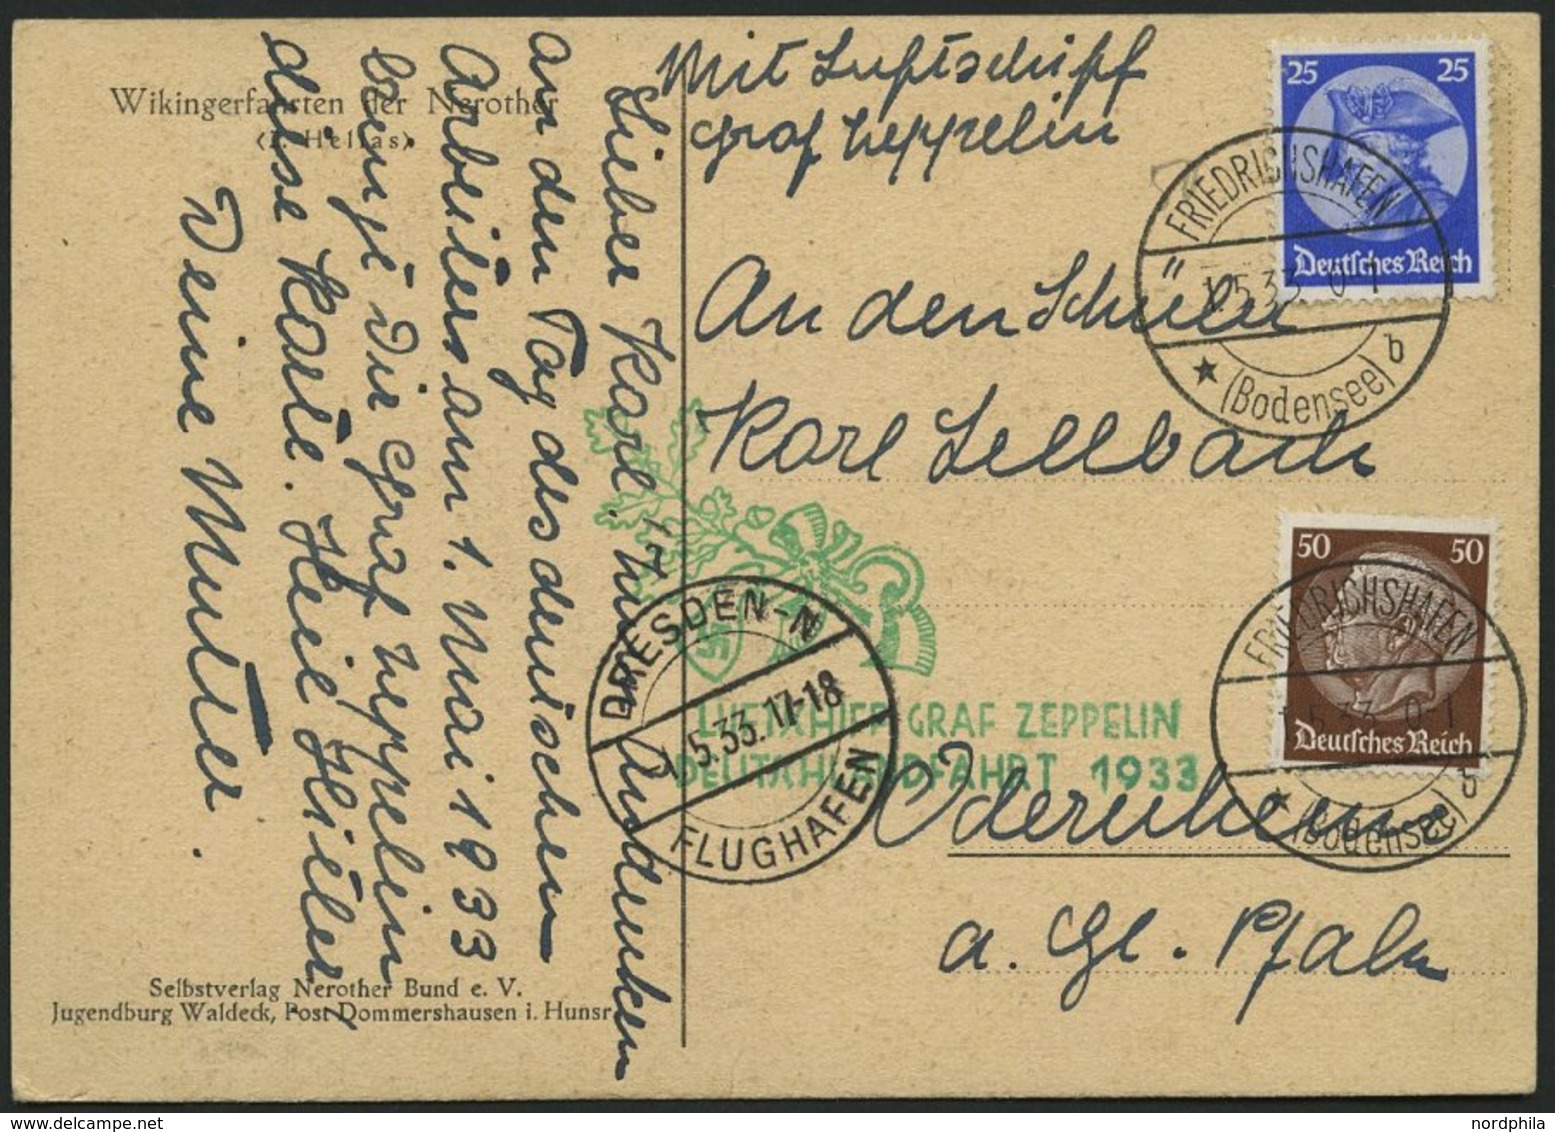 Wikingerfahrten der Nerother
(2. Hellas)
Lieber Karl. Zum Andenken
an den Tag des deutschen
Arbeiters am 1. Mai 1933
bringt Dir Graf Zeppelin
diese Karte. Heil Hitler
Deine Mutter.
Selbstverlag Nerother Bund e. V.
Jugendburg Waldeck, Post Dommershausen i. Hunsr.
Mit Luftschiff
Graf Zeppelin
An den Schüler
Karl Sellbach
Odernheim
a. Gl. Pfalz
25 25
Deutsches Reich
FRIEDRICHSHAFEN
1.5.33. 0-1
(Bodensee) b
50 50
Deutsches Reich
FRIEDRICHSHAFEN
1.5.33. 0-1
(Bodensee) b
LUFTSCHIFF GRAF ZEPPELIN
DEUTSCHLANDFAHRT 1933
DRESDEN-N
1.5.33.17-18
FLUGHAFEN
nordphila